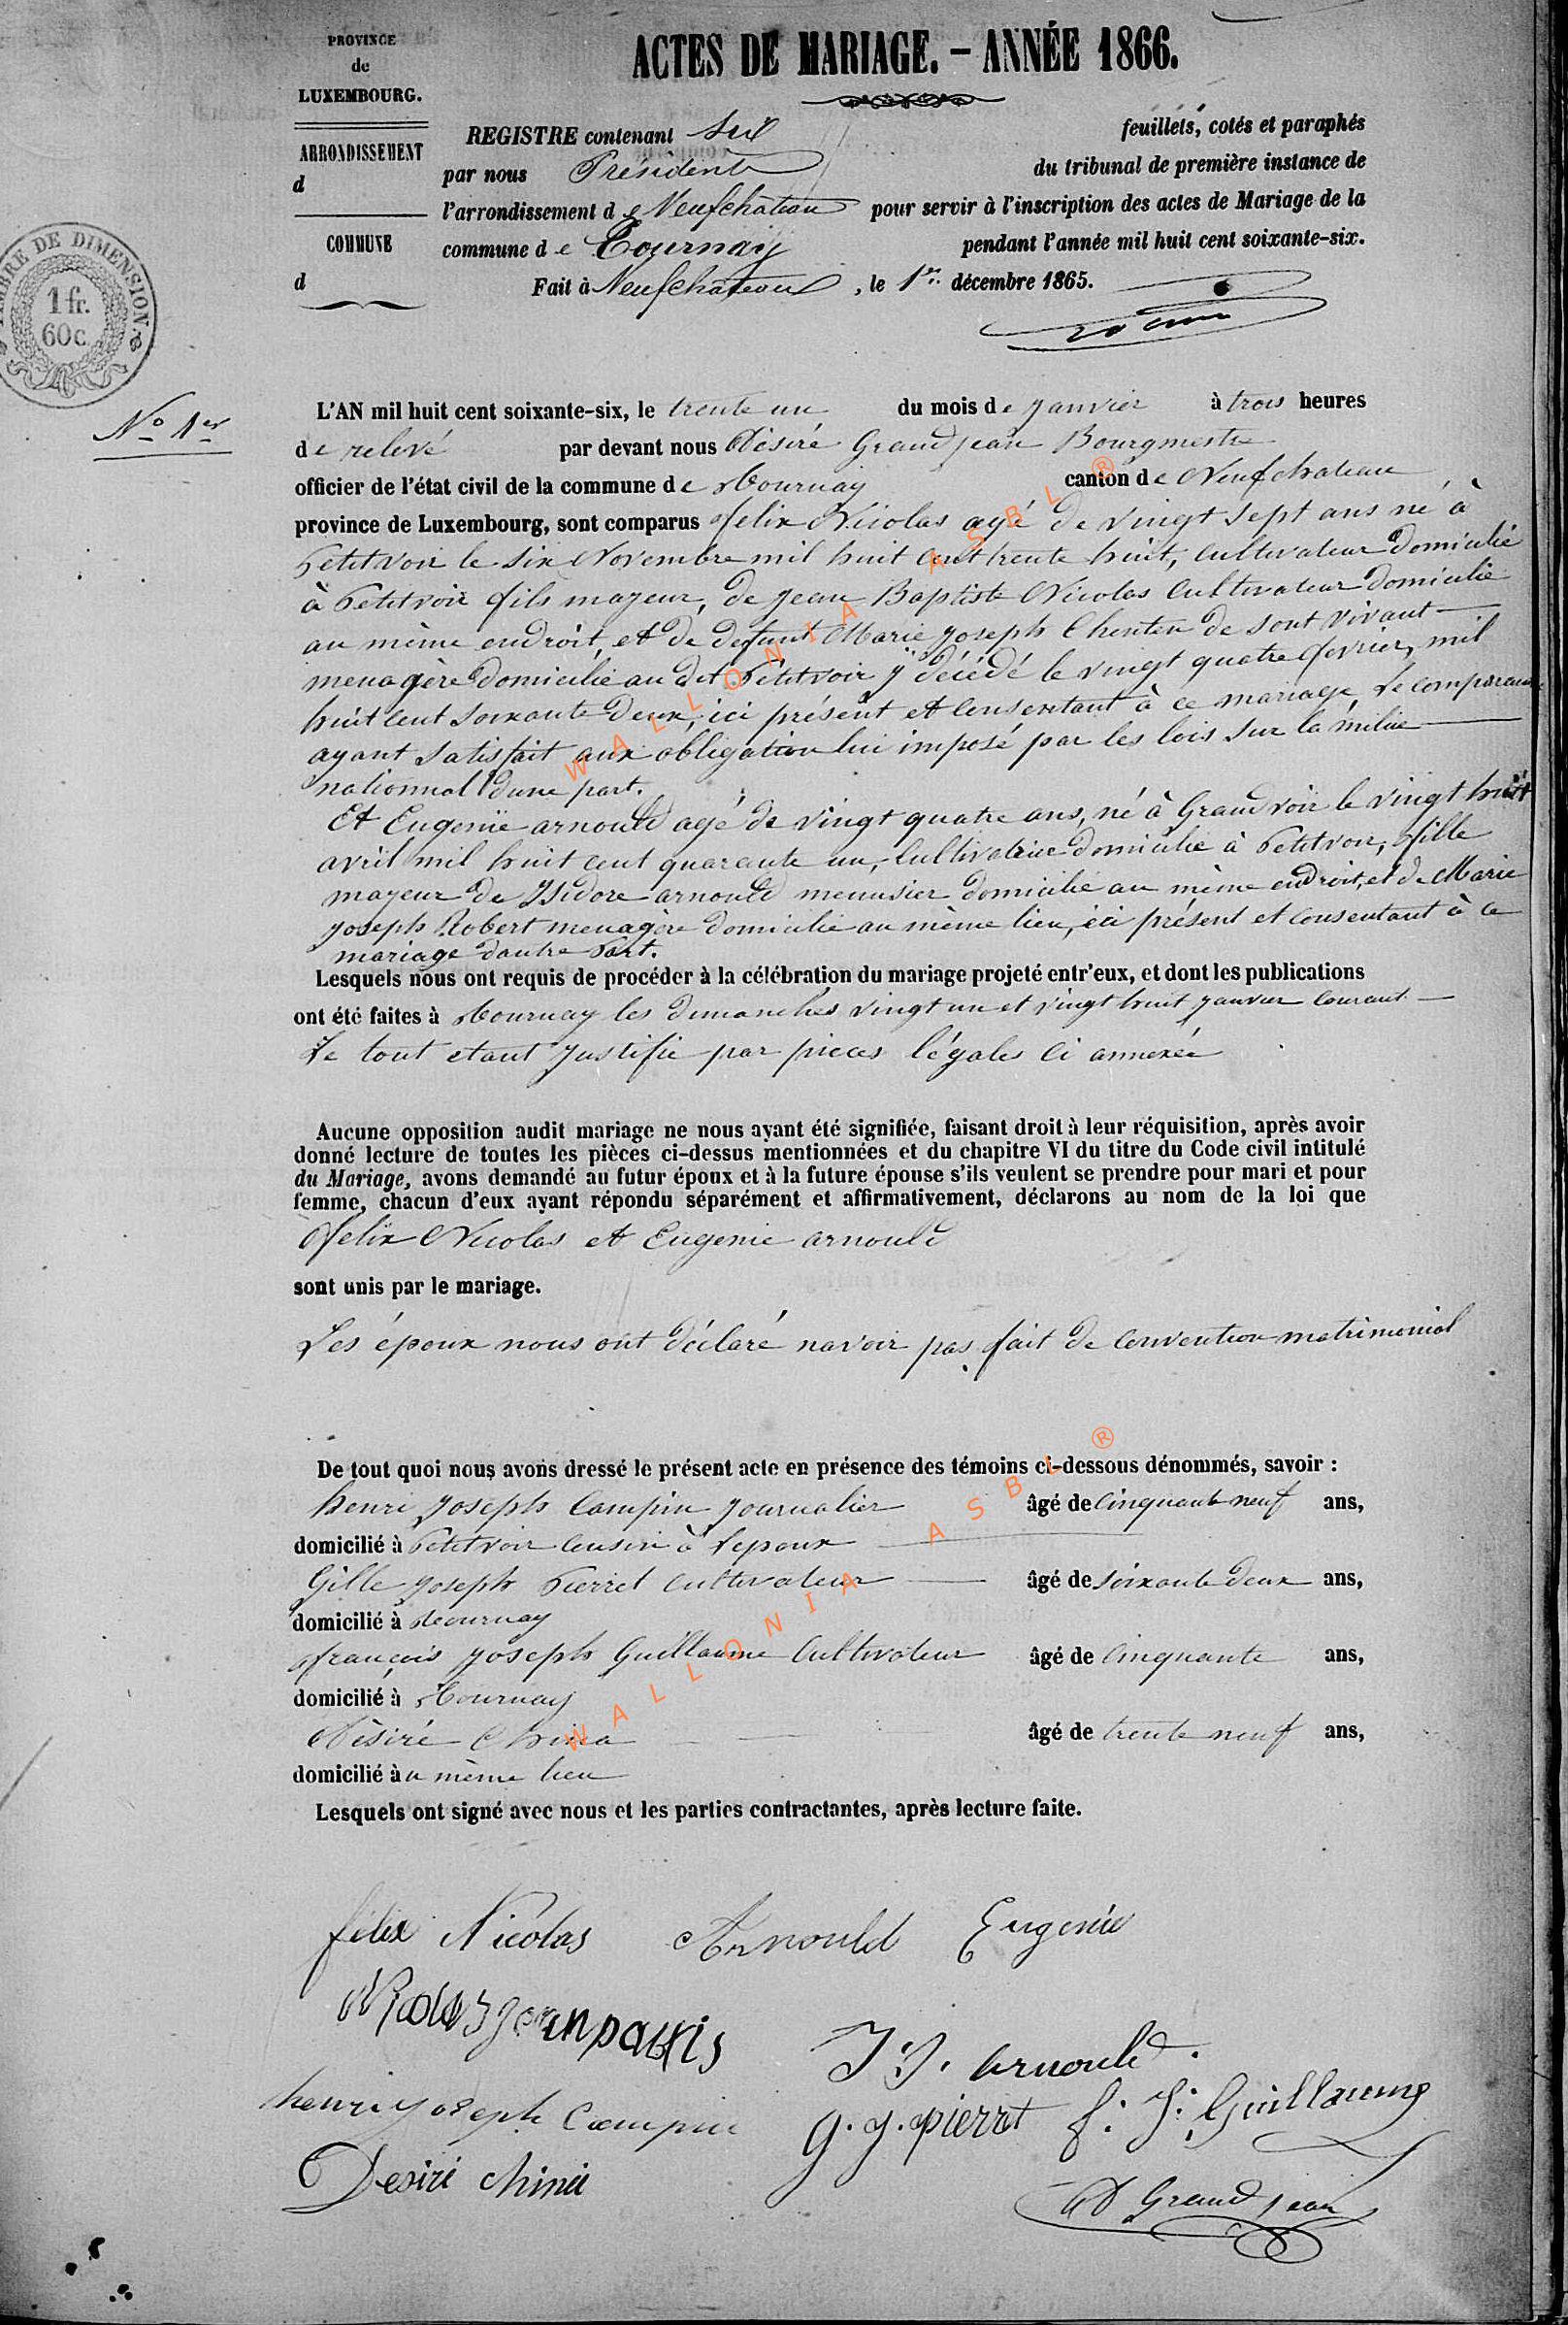 PROVINCE
de
LUXEMBOURG.
ARRONDISSEMENT
d
COMMUNE
d
TIMBRE DE DIMENSION.
1 fr.
60c.
ACTES DE MARIAGE. – ANNÉE 1866.
REGISTRE contenant six feuillets, cotés et paraphés
par nous Président du tribunal de première instance de
l'arrondissement de Neufchâteau pour servir à l'inscription des actes de Mariage de la
commune de Tournay pendant l'année mil huit cent soixante-six.
Fait à Neufchâteau, le 1er décembre 1865.
No 1er
L'AN mil huit cent soixante-six, le trente un du mois de janvier à trois heures
de relevé par devant nous Désiré Grandjean Bourgmestre
officier de l'état civil de la commune de Tournay canton de Neufchateau
province de Luxembourg, sont comparus felix Nicolas agé de vingt sept ans né à
Petitvoir le six Novembre mil huit cent trente huit, cultivateur domicilié
à Petitvoir fils majeur, de jean Baptiste Nicolas Cultivateur domicilié
au même endroit, et de defunt Marie joseph de sont vivant
menagère domicilié au dit Petitvoir ÿ décédé le vingt quatre fevrier, mil
huit cent soixante deux, ici présent et consentant à ce mariage Le comparant
ayant satisfait aux obligation lui imposé par les lois sur la milice
nationnal dune part.
Et Eugenïe arnould agé de vingt quatre ans, né à Grandvoir le vingt huit
avril mil huit cent quarante un, Cultivatrice domicilié à Petitvoir, fille
majeur de Isidore arnould menusier domicilié au même endroit, et de Marie
joseph Robert menagère domicilié au même lieu, ici présent et consentant à ce
mariage dautre Part.
Lesquels nous ont requis de procéder à la célébration du mariage projeté entr'eux, et dont les publications
ont été faites à Tournay les dimanches vingt un et vingt huit janvier courant
Le tout etant justifié par pieces légales ci annexée
Aucune opposition audit mariage ne nous ayant été signifiée, faisant droit à leur réquisition, après avoir
donné lecture de toutes les pièces ci-dessus mentionnées et du chapitre VI du titre du Code civil intitulé
du Mariage, avons demandé au futur époux et à la future épouse s'ils veulent se prendre pour mari et pour
femme, chacun d'eux ayant répondu séparément et affirmativement, déclarons au nom de la loi que
felix Nicolas et Eugenie arnould
sont unis par le mariage.
Les époux nous ont déclaré navoir pas fait de convention matrimonial
De tout quoi nous avons dressé le présent acte en présence des témoins ci-dessous dénommés, savoir :
henri joseph Campin journalier âgé de Cinquante neuf ans,
domicilié à Petitvoir Cousin à lepoux
Gille joseph Pierret cultivateur âgé de soixante deux ans,
domicilié à Tournay
françois joseph Guillaume Cultivateur âgé de Cinquante ans,
domicilié à Tournay
Désiré âgé de trente neuf ans,
domicilié à u même lieu
Lesquels ont signé avec nous et les parties contractantes, après lecture faite.
félix Nicolas Arnould Eugenie
J. J. arnould.
henri yoseph Campin g. j. pierret f: J: Guillaume
Desiré
D Grandjean
WALLONIA ASBL ®
WALLONIA ASBL ®